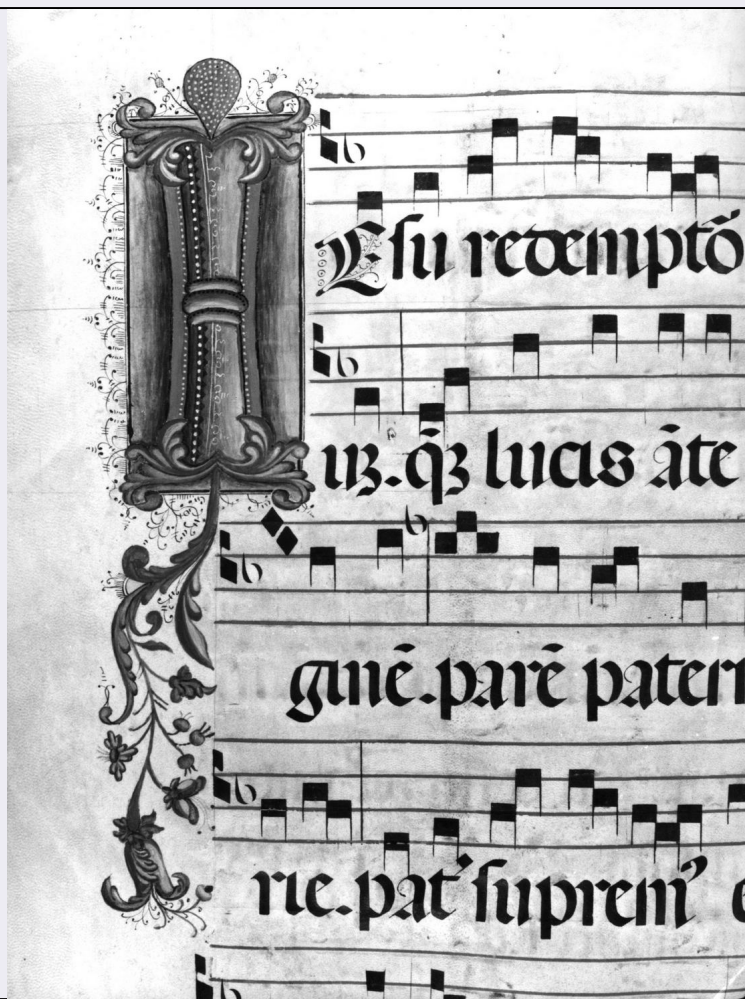 IESu redemptõ
uꝫ. q̃ꝫ lucis ãte
ginẽ. parẽ patern
rie. pat᾽ suprem᾽